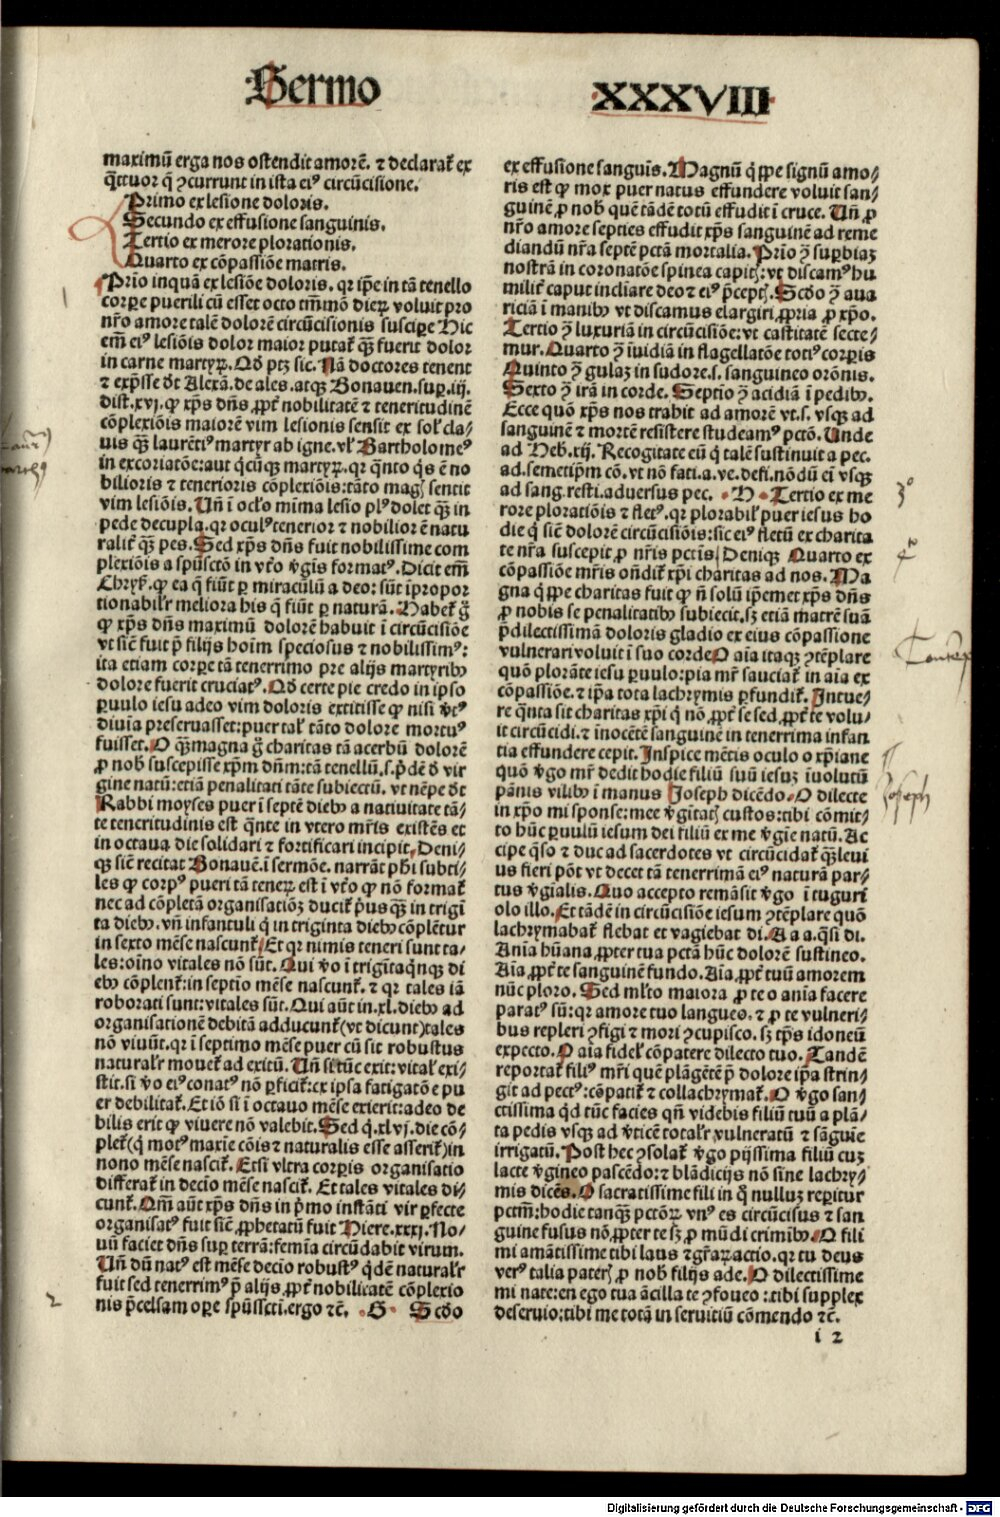 Sermo XXXVIII
maximũ erga nos ostendit amorẽ. ⁊ declarat̃ ex
q̃ttuor q̃ ꝯcurrunt in ista eiꝰ circũcisione.
Primo ex lesione doloris.
Secundo ex effusione sanguinis.
Tertio ex merore plorationis.
Quarto ex cõpassiõe matris.
Prĩo inquã ex lesiõe doloris. qr ip̃e in tã tenello
corꝑe puerili cũ esset octo tm̃mõ dieꝝ voluit pro
nr̃o amore talẽ dolorẽ circũcisionis susciꝑe Hic
em̃ eiꝰ lesiõis dolor maior putat̃ q̃ꝫ fuerit dolor
in carne martyꝝ. Qð ptꝫ sic. Nã doctores tenent
⁊ exp̃sse dt̃ Alexã. de ales. atqꝫ Bonauen. suꝑ. iij.
dist. xvj. ꝙ xp̃s dñs ꝓpt̃ nobilitatẽ ⁊ teneritudinẽ
cõplexiõis maiorẽ vim lesionis sensit ex sol̃ cla⸗
uis q̃ꝫ laurẽtiꝰ martyr ab igne. vl̃ Bartholomeꝰ
in excoriatõe: aut q̃cũqꝫ martyꝝ. qr q̃nto q̃s ẽ no
bilioris ⁊ tenerioris cõplexiõis: tãto mag̃ sentit
vim lesiõis. Uñ ĩ ocl̃o mima lesio plꝰ dolet q̃ꝫ in
pede decupla. qr oculꝰ tenerior ⁊ nobilior ẽ natu
ralit̃ q̃ꝫ pes. Sed xp̃s dñs fuit nobilissime com
plexiõis a sp̃uscto in vt̃o v̓gis formatꝰ. Dicit em̃
Chryß. ꝙ ea q̃ fiũt ꝑ miraculũ a deo: sũt ĩpropor
tionabilr̃ meliora his q̃ fiũt ꝑ naturã. Habet̃ g̃
ꝙ xp̃s dñs maximũ dolorẽ habuit ĩ circũcisiõe
vt sicẽ fuit p̃ filijs hoĩm speciosus ⁊ nobilissimꝰ:
ita etiam corꝑe tã tenerrimo pre alijs martyribꝰ
dolore fuerit cruciatꝰ. Qð certe pie credo in ipso
ꝑuulo iesu adeo vim doloris extitisse ꝙ nisi v̓tꝰ
diuĩa preseruasset: puer tal̃ tãto dolore mortuꝰ
fuisset. O q̃ꝫ magna g̃ charitas tã acerbũ dolorẽ
ꝓ nob̃ suscepisse xp̃m dñm: tã tenellũ. s. p̃dẽ ð vir
gine natũ: etiã penalitati tãte subiectũ. vt nẽpe ðt
Rabbi moyses puer ĩ septẽ diebꝰ a natiuitate tã⸗
te teneritudinis est q̃nte in vtero mr̃is existẽs et
in octaua die solidari ⁊ fortificari incipit. Deni⸗
qꝫ sicẽ recitat Bonauẽ. ĩ sermõe. narrãt phi subti⸗
les ꝙ corpꝰ pueri tã teneꝝ est ĩ vt̃o ꝙ nõ format̃
nec ad cõpletã organisatiõꝫ ducit̃ p̓us q̃ꝫ in trigĩ
ta diebꝰ. vñ infantuli q̓ in triginta diebꝰ cõplẽtur
in sexto mẽse nascunt̃. Et qr nimis teneri sunt ta⸗
les: oĩno vitales nõ sũt. Qui v̓o ĩ trigĩtaq̃nqꝫ di
ebꝰ cõplent̃: in septĩo mẽse nascunt̃. ⁊ qr tales iã
roborati sunt: vitales sũt. Qui aũt in. xl. diebꝰ ad
organisationẽ debitã adducunt̃ (vt dicunt) tales
nõ viuũt. qr ĩ septimo mẽse puer cũ sit robustus
naturalr̃ mouet̃ ad exitũ. Uñ si tũc exit: vital̃ exi⸗
stit. si v̓o eiꝰ conatꝰ nõ ꝑficit̃: ex ipsa fatigatõe pu
er debilitat̃. Et iõ si ĩ octauo mẽse exierit: adeo de
bilis erit ꝙ viuere nõ valebit. Sed q̓. xlvj. die cõ⸗
plet̃ (q̓ motꝰ maxĩe cõis ⁊ naturalis esse asserit̃) in
nono mẽse nascit̃. Etsi vltra corꝑis organisatio
differat̃ in decĩo mẽse nascit̃. Et tales vitales di⸗
cunt̃. Qm̃ aũt xp̃s dñs in p̓mo instãti vir ꝑfecte
organisatꝰ fuit sicẽ ꝓphetatũ fuit Hiere. xxxj. No⸗
uũ faciet dñs suꝑ terrã: femĩa circũdabit virum.
Uñ dũ natꝰ est mẽse decĩo robustꝰ q̓dẽ naturalr̃
fuit sed tenerrimꝰ p̃ alijs, ꝓpt̃ nobilitatẽ cõplexio
nis p̃celsam oꝑe sp̃usscti. ergo ⁊c̃. G Scðo
ex effusione sanguĩs. Magnũ q̓ꝑpe signũ amo⸗
ris est ꝙ mox puer natus effundere voluit san⸗
guinẽ ꝓ nob̃ quẽ tãdẽ totũ effudit ĩ cruce. Uñ ꝓ
nr̃o amore septies effudit xp̃s sanguinẽ ad reme
diandũ nr̃a septẽ pctã mortalia. Prĩo ꝯ̃ suꝑbiaꝫ
nostrã in coronatõe spinea capit̃: vt discamꝰ hu
milit̃ caput inclĩare deo ⁊ eiꝰ p̃cept̃. Scðo ꝯ̃ aua
riciã ĩ manibꝰ vt discamus elargiri ꝓpria ꝓ xp̃o.
Tertio ꝯ̃ luxuriã in circũcisiõe: vt castitatẽ secte⸗
mur. Quarto ꝯ̃ ĩuidiã in flagellatõe totiꝰ corꝑis
Quinto ꝯ̃ gulaꝫ in sudore. s. sanguineo orõnis.
Sexto ꝯ̃ irã in corde. Septĩo ꝯ̃ acidiã ĩ pedibꝰ.
Ecce quõ xp̃s nos trahit ad amorẽ vt. s. vsqꝫ ad
sanguinẽ ⁊ mortẽ resistere studeamꝰ pctõ. Unde
ad Heb. xij. Recogitate eũ q̓ talẽ sustinuit a pec.
ad. semetip̃m cõ. vt nõ fati. a. ve. defi. nõdũ eĩ vsqꝫ
ad sang. resti. aduersus pec. H Tertio ex me
rore ploratiõis ⁊ fletꝰ. qr plorabil̃ puer iesus ho
die q̓ sicẽ dolorẽ circũcisiõis: sic eiꝰ fletũ ex charita
te nr̃a suscepit ꝓ nr̃is pctis. Deniqꝫ Quarto ex
cõpassiõe mr̃is oñdit̃ xp̃i charitas ad nos. Ma
gna q̓ꝑpe charitas fuit ꝙ ñ solũ ip̃emet xp̃s dñs
ꝓ nobis se penalitatibꝰ subiecit. sꝫ etiã matrẽ suã
p̃dilectissimã doloris gladio ex eius cõpassione
vulnerari voluit ĩ suo corde O aĩa itaqꝫ ꝯtẽplare
quõ plorãte iesu ꝑuulo: pia mr̃ sauciat̃ in aĩa ex
cõpassiõe. ⁊ ip̃a tota lachrymis ꝑfundit̃. Intue⸗
re q̃nta sit charitas xp̃i q̓ nõ ꝓpt̃ se sed ꝓpt̃ te volu⸗
it circũcidi. ⁊ inocẽtẽ sanguinẽ in tenerrima infan
tia effundere cepit. Inspice mẽtis oculo o xp̃iane
quõ v̓go mr̃ dedit hodie filiũ suũ iesuꝫ ĩuolutũ
pãnis vilibꝰ ĩ manus Joseph dicẽdo. O dilecte
in xp̃o mi sponse: mee v̓gĩtat̃ custos: tibi cõmit⸗
to hũc ꝑuulũ iesum dei filiũ ex me v̓gĩe natũ. Ac
cipe q̃so ⁊ duc ad sacerdotes vt circũcidat̃ q̃ꝫ leui
us fieri põt vt decet tã tenerrimã eiꝰ naturã par⸗
tus v̓gialis. Quo accepto remãsit v̓go ĩ tuguri
olo illo. Et tãdẽ in circũcisiõe iesum ꝯtẽplare quõ
lachrymabat̃ flebat et vagiebat di. A a a. q̃si di.
Anĩa hũana ꝓpter tua pctã hũc dolorẽ sustineo.
Aĩa ꝓpt̃ te sanguinẽ fundo. Aĩa ꝓpt̃ tuũ amorem
nũc ploro. Sed ml̃to maiora ꝓ te o anĩa facere
paratꝰ sũ: qr amore tuo langueo. ⁊ ꝓ te vulneri⸗
bus repleri ꝯfigi ⁊ mori ꝯcupisco. sꝫ tp̃s idoneũ
expecto. O aĩa fidel̃ cõpatere dilecto tuo. Tandẽ
reportat̃ filiꝰ mr̃i quẽ plãgẽtẽ p̃ dolore ip̃a strin⸗
git ad pectꝰ: cõpatit̃ ⁊ collachrymat̃. O v̓go san⸗
ctissima qd̃ tũc facies qñ videbis filiũ tuũ a plã⸗
ta pedis vsqꝫ ad v̓ticẽ totalr̃ vulneratũ ⁊ sãguĩe
irrigatũ. Post hec ꝯsolat̃ v̓go pijssima filiũ cuꝫ
lacte v̓gineo pascẽdo: ⁊ blãdicijs nõ sĩne lachry⸗
mis dicẽs. O sacratissime fili in q̊ nulluꝫ reꝑitur
pctm̃: hodie tanq̃ꝫ pctõꝝ vnꝰ es circũcisus ⁊ san
guine fusus nõ ꝓpter te sꝫ ꝓ mũdi crimibꝰ. O fili
mi amãtissime tibi laus ⁊ gr̃aꝝ actio. qr tu deus
verꝰ talia pateris̃ ꝓ nob̃ filijs ade. O dilectissime
mi nate: en ego tua ãcilla te ꝯfoueo: tibi supplex
deseruio: tibi me totã in seruitiũ cõmendo ⁊c̃.
i 2
Joseph
Digitalisierung gefördert durch die Deutsche Forschungsgemeinschaft - DFG